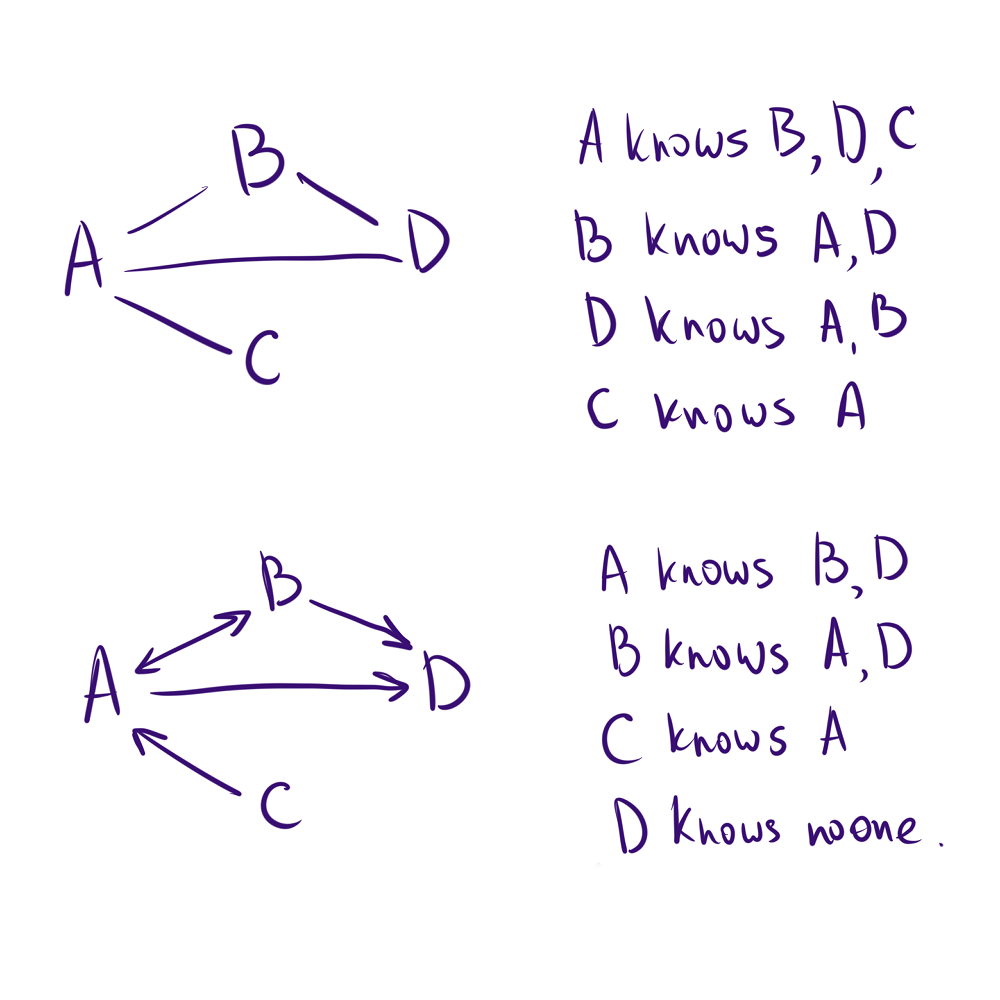 B
A
D
C
A knows B, D, C
B knows A, D
D knows A, B
C knows A
B
A
D
C
A knows B, D
B knows A, D
C knows A
D knows noone.